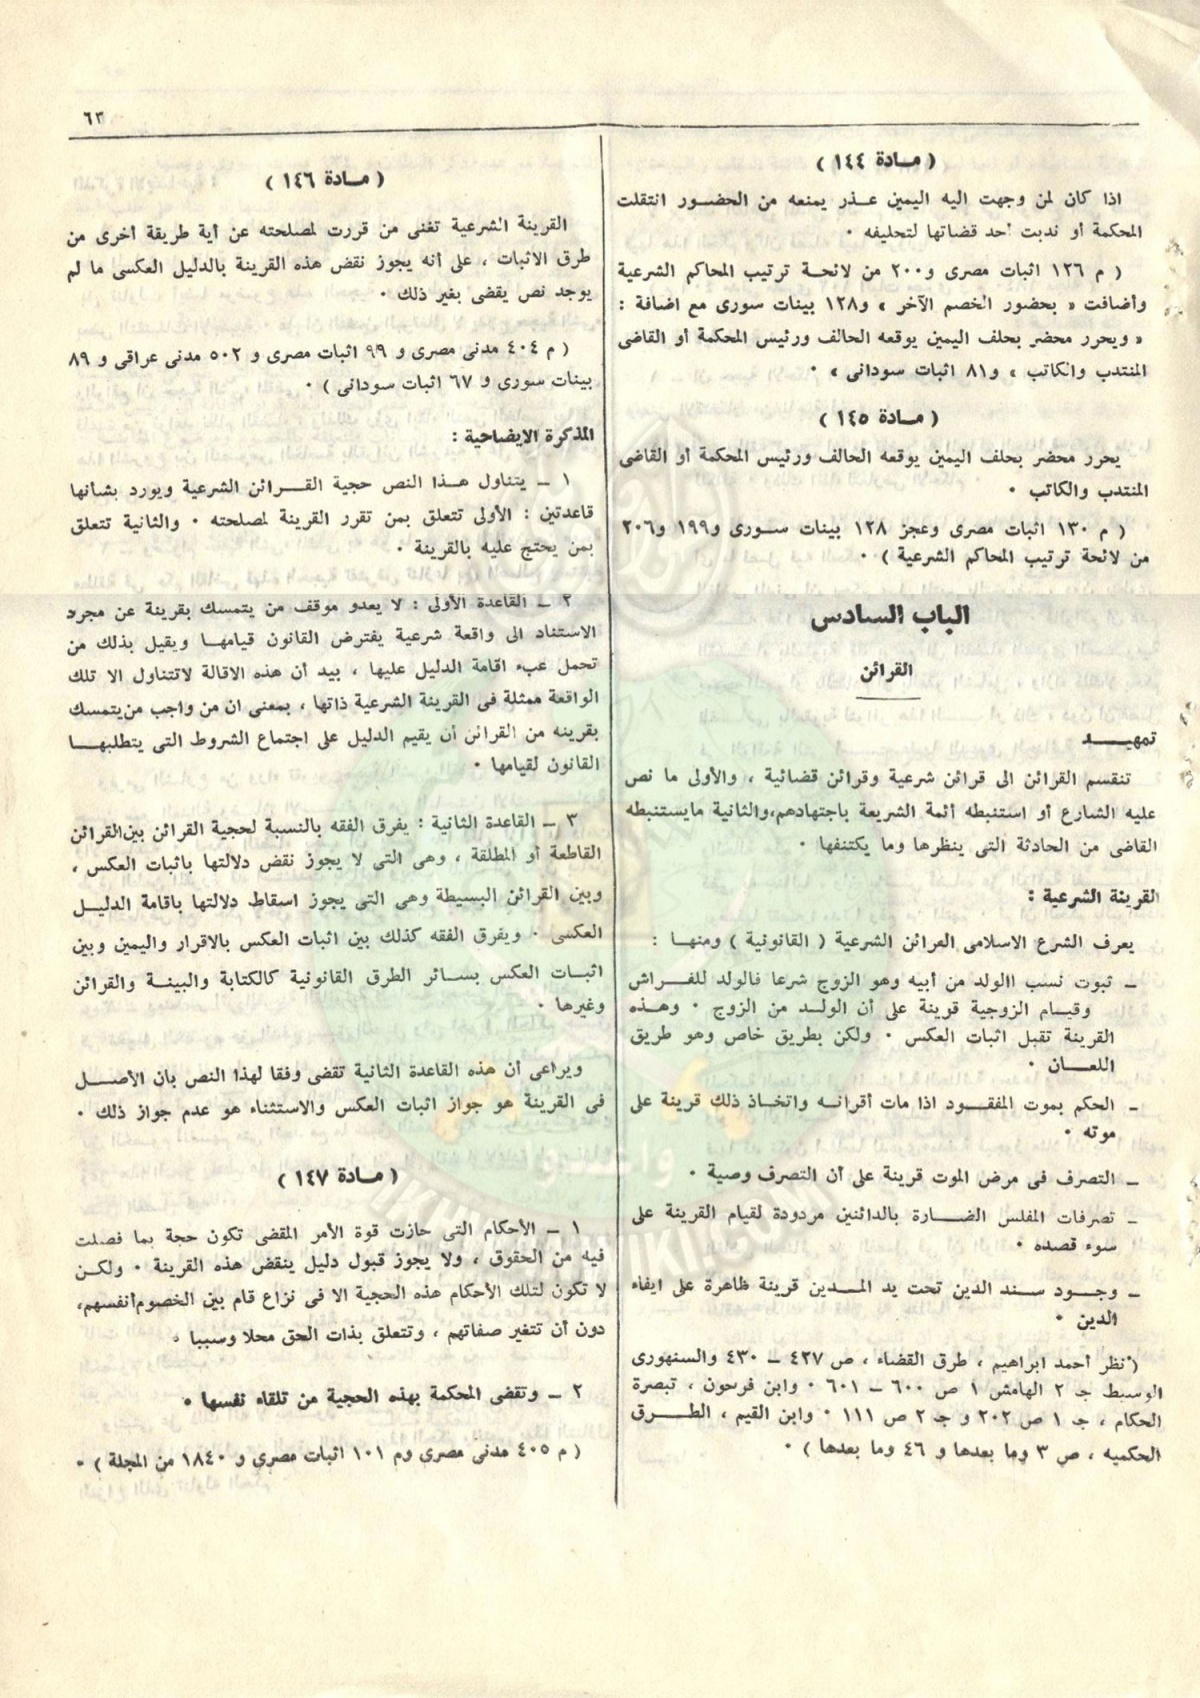 ٦٣
( مـادة ١٤٤ )
اذا كان لمن وجهت اليه اليمين عـذر يمنعه من الحضـور انتقلت
المحكمة أو ندبت أحد قضاتها لتحليفه ٠
( م ١٢٦ اثبات مصرى و٢٠٠ من لائحة ترتيب المحاكم الشرعية
وأضافت « بحضور الخصم الآخر » و١٢٨ بينات سورى مع اضافة :
« ويحرر محضر بحلف اليمين يوقعه الحالف ورئيس المحكمة أو القاضى
المنتدب والكاتب » و٨١ اثبات سودانى » ٠
( مـادة ١٤٥ )
يحرر محضر بحلف اليمين يوقعه الحالف ورئيس المحكمة أو القاضى
المنتدب والكاتب ٠
( م ١٣٠ اثبات مصرى وعجز ١٢٨ بينات سـورى و١٩٩ و٢٠٦
من لائحة ترتيب المحاكم الشرعية ) ٠
الباب السادس
القرائن
تمهيـــد
تنقسم القرائن الى قرائن شرعية وقرائن قضائية ، والأولى ما نص
عليه الشارع أو استنبطه أئمة الشريعة باجتهادهم،والثانية مايستنبطه
القاضى من الحادثة التى ينظرها وما يكتنفها ٠
القرينة الشرعية :
يعرف الشرع الاسلامى العرائن الشرعية ( القانونية ) ومنهـا :
ـ ثبوت نسب االولد من أبيه وهو الزوج شرعا فالولد للفـراش
وقيـام الزوجية قرينة على أن الولـد من الزوج ٠ وهـذه
القرينة تقبل اثبات العكس ٠ ولكن بطريق خاص وهو طريق
اللعـان ٠
ـ الحكم بموت المفقـود اذا مات أقرانـه واتخاذ ذلك قرينة على
موته ٠
ـ التصرف فى مرض الموت قرينة على أن التصرف وصية ٠
ـ تصرفات المفلس الضـارة بالدائنين مردودة لقيام القرينة على
سوء قصده ٠
ـ وجـود سند الدين تحت يد المـدين قرينة ظاهرة على ايفاء
الدين ٠
(أنظر أحمد ابراهيم ، طرق القضاء ، ص ٤٢٧ ـ ٤٣٠ والسنهورى
الوسيط جـ ٢ الهامش ١ ص ٦٠٠ ـ ٦٠١ ٠ وابن فرحون ، تبصرة
الحكام ، جـ ١ ص ٢٠٢ و جـ ٢ ص ١١١ ٠ وابن القيم ، الطـرق
الحكميه ، ص ٣ وما بعدها و ٤٦ وما بعدها ) ٠
( مـادة ١٤٦ )
القرينة الشرعية تغنى من قررت لمصلحته عن أية طريقة أخرى من
طرق الاثبات ، على أنه يجوز نقض هذه القرينة بالدليل العكسى ما لم
يوجد نص يقضى بغير ذلك ٠
( م ٤٠٤ مدنى مصرى و ٩٩ اثبات مصرى و ٥٠٢ مدنى عراقى و ٨٩
بينات سورى و ٦٧ اثبات سودانى ) ٠
المذكرة الايضاحية :
١ ـ يتناول هـذا النص حجية القـرائن الشرعية ويورد بشانها
قاعدتين : الأولى تتعلق بمن تقرر القرينة لمصلحته ٠ والثانية تتعلق
بمن يحتج عليه بالقرينة ٠
٢ ـ القاعدة الأولى : لا يعدو موقف من يتمسك بقرينة عن مجرد
الاستناد الى واقعة شرعية يفترض القانون قيامهـا ويقيل بذلك من
تحمل عبء اقامة الدليل عليها ، بيد أن هذه الاقالة لاتتناول الا تلك
الواقعة ممثلة فى القرينة الشرعية ذاتها ، بمعنى ان من واجب من‌يتمسك
بقرينه من القرائن أن يقيم الدليل على اجتماع الشروط التى يتطلبهـا
القانون لقيامها ٠
٣ ـ القاعدة الثانية : يفرق الفقه بالنسبة لحجية القرائن بين‌القرائن
القاطعة أو المطلقة ، وهى التى لا يجوز نقض دلالتها باثبات العكس ،
وبين القرائن البسيطة وهى التى يجوز اسقاط دلالتها باقامة الدليل
العكسى ٠ ويفرق الفقه كذلك بين اثبات العكس بالاقرار واليمين وبين
اثبـات العكس بسـائر الطرق القانونية كالكتابة والبينة والقرائن
وغيرها ٠
ويراعى أن هذه القاعدة الثانية تقضى وفقا لهذا النص بان الأصـل
فى القرينة هو جواز اثبات العكس والاستثناء هو عدم جواز ذلك ٠
( مـادة ١٤٧ )
١ ـ الأحكام التى حازت قوة الأمر المقضى تكون حجة بما فصلت
فيه من الحقوق ، ولا يجوز قبول دليل ينقض هذه القرينة ٠ ولكـن
لا تكون لتلك الأحكام هذه الحجية الا فى نزاع قام بين الخصوم‌أنفسهم،
دون أن تتغير صفاتهم ، وتتعلق بذات الحق محلا وسببا ٠
٢ ـ وتقضى المحكمة بهذه الحجية من تلقاء نفسها ٠
( م ٤٠٥ مدنى مصرى وم ١٠١ اثبات مصرى و ١٨٤٠ من المجلة ) ٠